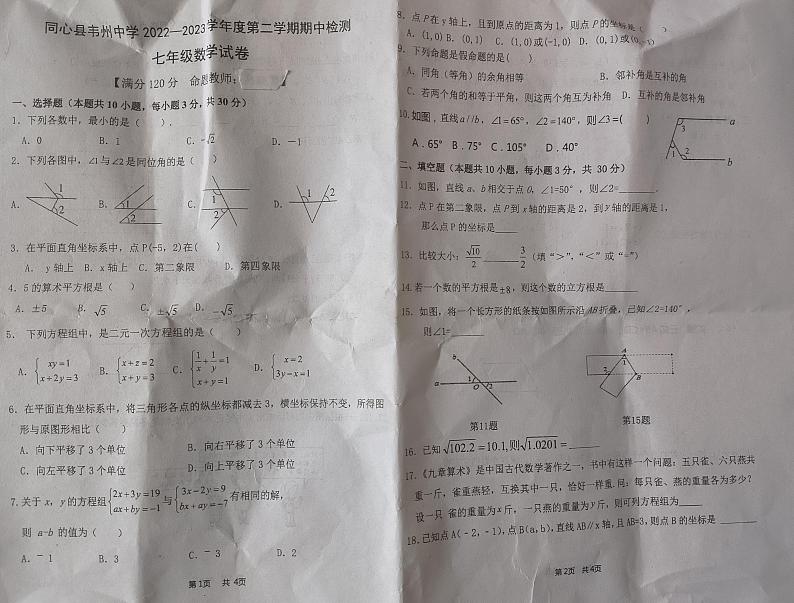 同心县韦州中学2022—2023学年度第二学期期中检测
七年级数学试卷
【满分120分 命题教师：
一、选择题（本题共10小题，每小题3分，共30分）
1．下列各数中，最小的是（ ）．
A．0 B．1 C．-√2 D．－1
2．下列各图中，∠1与∠2是同位角的是（ ）
A． B． C． D．
1 2 1 2 1 2 1 2
3．在平面直角坐标系中，点P(-5，2)在( )
A． y轴上 B．x轴上 C．第二象限 D．第四象限
4．5的算术平方根是（ ）
A．±5 B．√5 C．±√5 D．－√5
5． 下列方程组中，是二元一次方程组的是（ ）
A．{xy=1 x+2y=3 B．{x+z=2 x+y=3 C．{1/x+1/y=1 x+y=1 D．{x=2 3y-x=1
6．在平面直角坐标系中，将三角形各点的纵坐标都减去3，横坐标保持不变，所得图
形与原图形相比（ ）
A．向下平移了3个单位 B．向右平移了3个单位
C．向左平移了3个单位 D．向上平移了3个单位
7.关于x，y的方程组{2x+3y=19 ax+by=-1与{3x-2y=9 bx+ay=-7有相同的解，
则 a-b 的值为（ ）
A．－1 B．3 C．－3 D．2
第1页 共4页
8．点P在y轴上，且到原点的距离为1，则点P的坐标是（ ）
A．(1,0) B．(0,1) C．(1,0)或(-1,0) D．(0,1)或(0,-1)
9．下列命题是假命题的是（ ）
A．同角（等角）的余角相等 B．邻补角是互补的角
C．若两个角的和等于平角，则这两个角互为补角 D．互补的角是邻补角
10.如图，直线a//b，∠1=65°，∠2=140°，则∠3=( )
A．65° B．75° C．105° D．40°
3 a
1 2 b
二、填空题（本题共10小题，每小题3分，共 30分）
11．如图，直线a、b相交于点O，∠1=50°，则∠2=______．
12．点P在第二象限，点P到x轴的距离是2，到y轴的距离是1，
那么点P的坐标是____
13．比较大小：√10/2 ______ 3/2（填“＞”，“＜”或“＝”）
14.若一个数的平方根是±8，则这个数的立方根是______
15．如图，将一个长方形的纸条按如图所示沿AB折叠，已知∠2=140°，
则∠1=______
b a 1 O 2
第11题
A 1 2 B
第15题
16．已知√102.2=10.1,则√1.0201=______
17．《九章算术》是中国古代数学著作之一，书中有这样一个问题：五只雀、六只燕共
重一斤，雀重燕轻，互换其中一只，恰好一样重.问：每只雀、燕的重量各为多少？
设一只 雀的重量为x斤，一只燕的重量为y斤，则可列方程组为____
18．已知点A(-2，-1),点B(a,b),直线AB//x轴，且AB=3,则点B的坐标是 ______
第2页 共4页